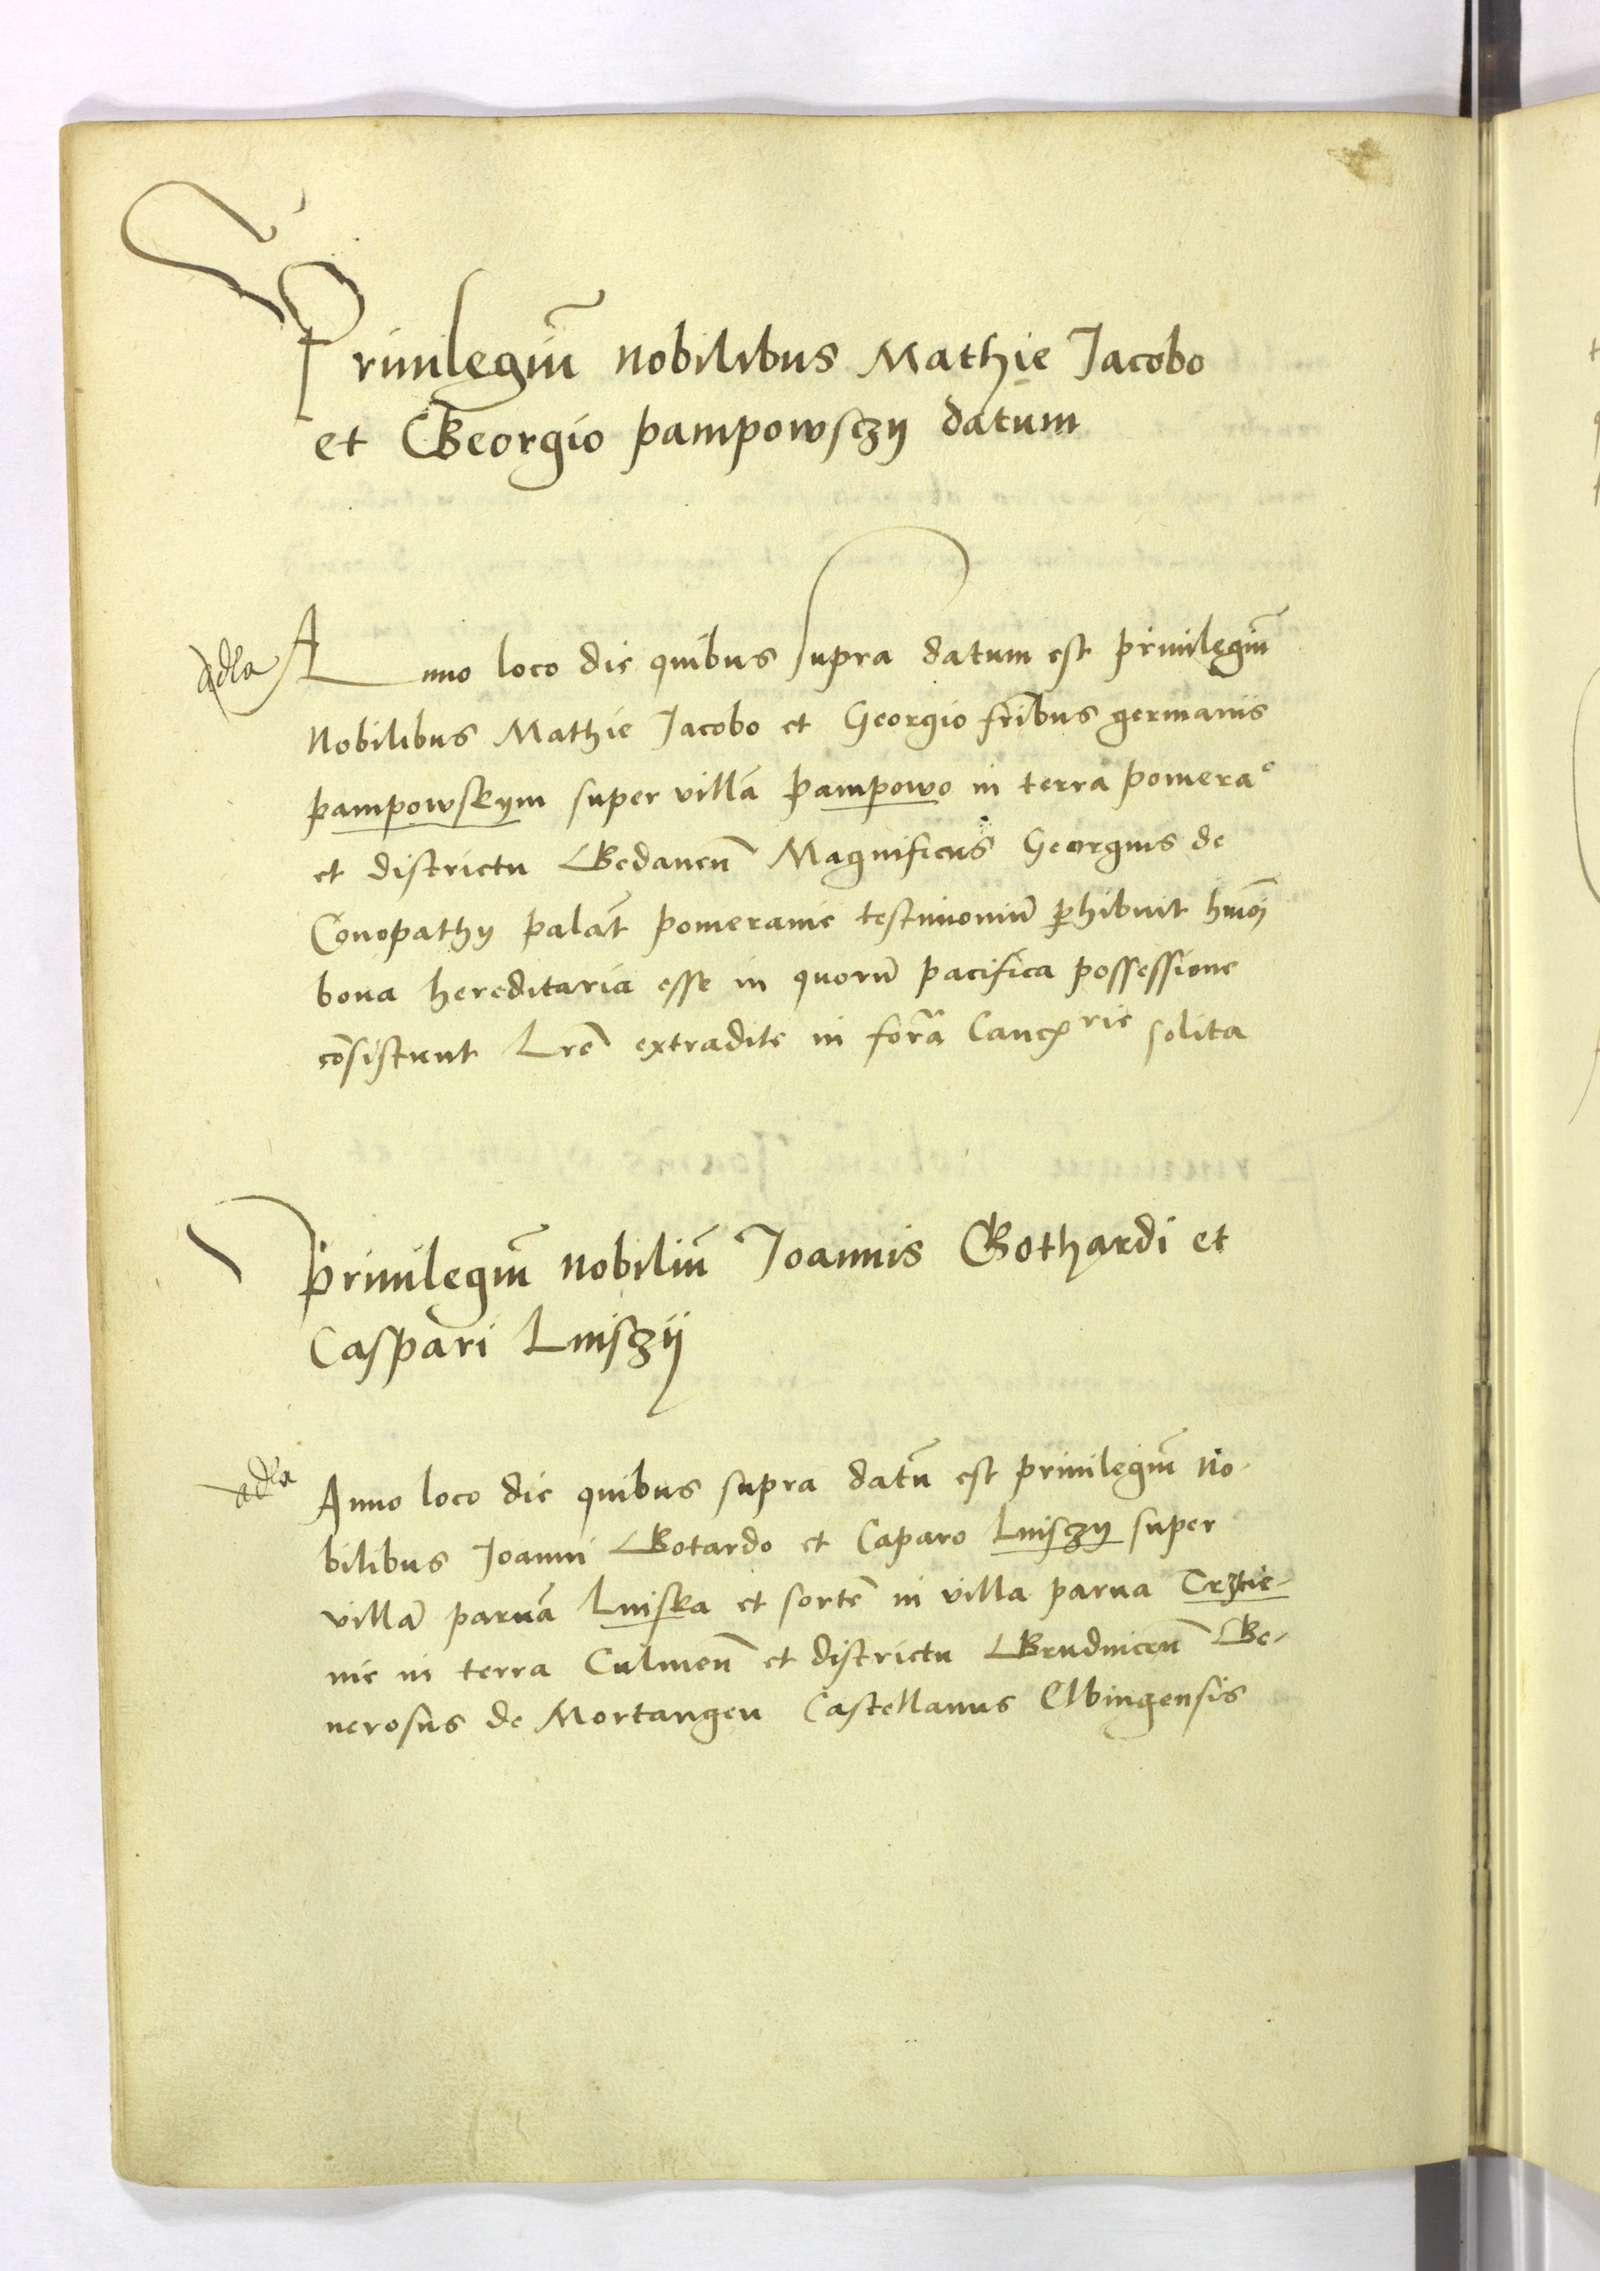 Priuilegiū nobilibus Mathie Jacobo
et Georgio pampowsczÿ datum
Anno loco die quibus supra datum est priuilegiū
Nobilibus Mathie Jacobo et Georgio frībus germanis
pampowskym super villā pampowo in terra pomeraᵉ
et districtu Gedanen̄ Magnificus Georgius de
Conopathÿ palāt pomeranie testimoniū ꝑhibuit hmōi
bona hereditaria esse in quorū pacifica possessione
cōsistunt Lrē extradite in for̄a Canc̄rie solita
priuilegiū nobiliū Joannis Gothardi et
Caspari Luisczÿ
Anno loco die quibus supra datū est priuilegiū No-
bilibus Joanni Gotardo et Caparo Luisczÿ super
villā paruā Luiska et sortē in villa parua Trzcie-
nie in terra Culmen̄ et districtu Brudnicen̄ Ge-
nerosus de Mortangen Castellanus Elbingensis